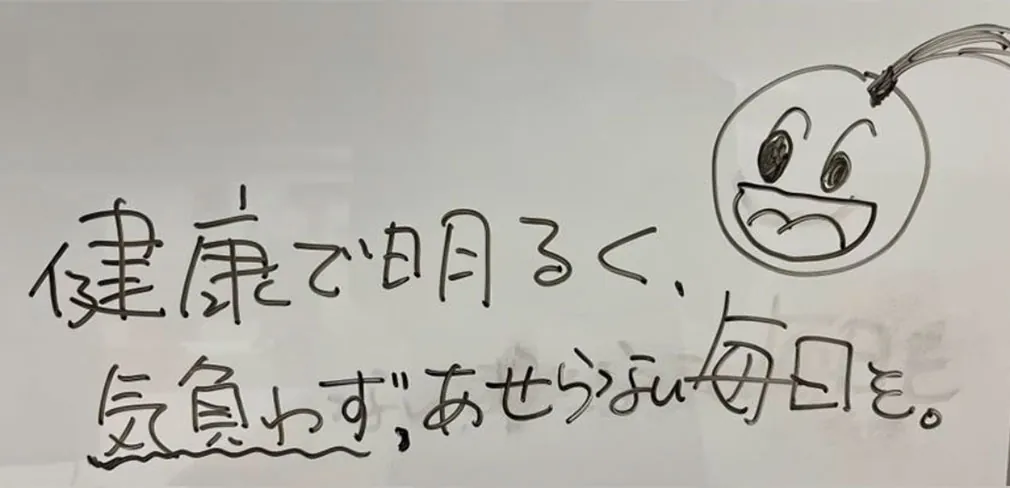 健康で明るく、
気負わず、あせらない毎日を。